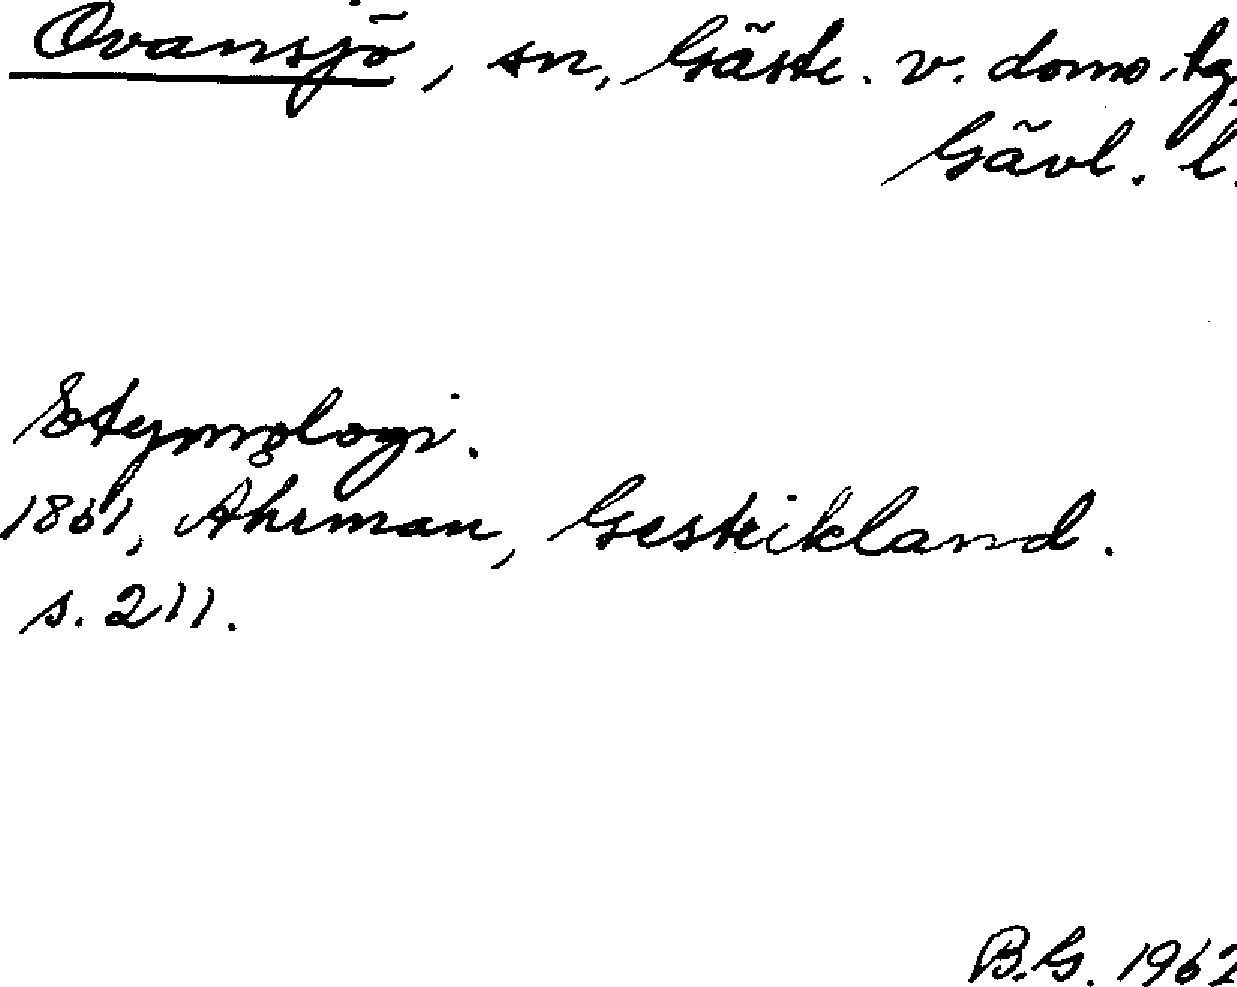 Ovansjö, sn, Gästr. v. doms.hg,
Gävl. l.
Etymologi.
1861, Ahrman, Gestrikland.
s. 211.
B.G. 1962